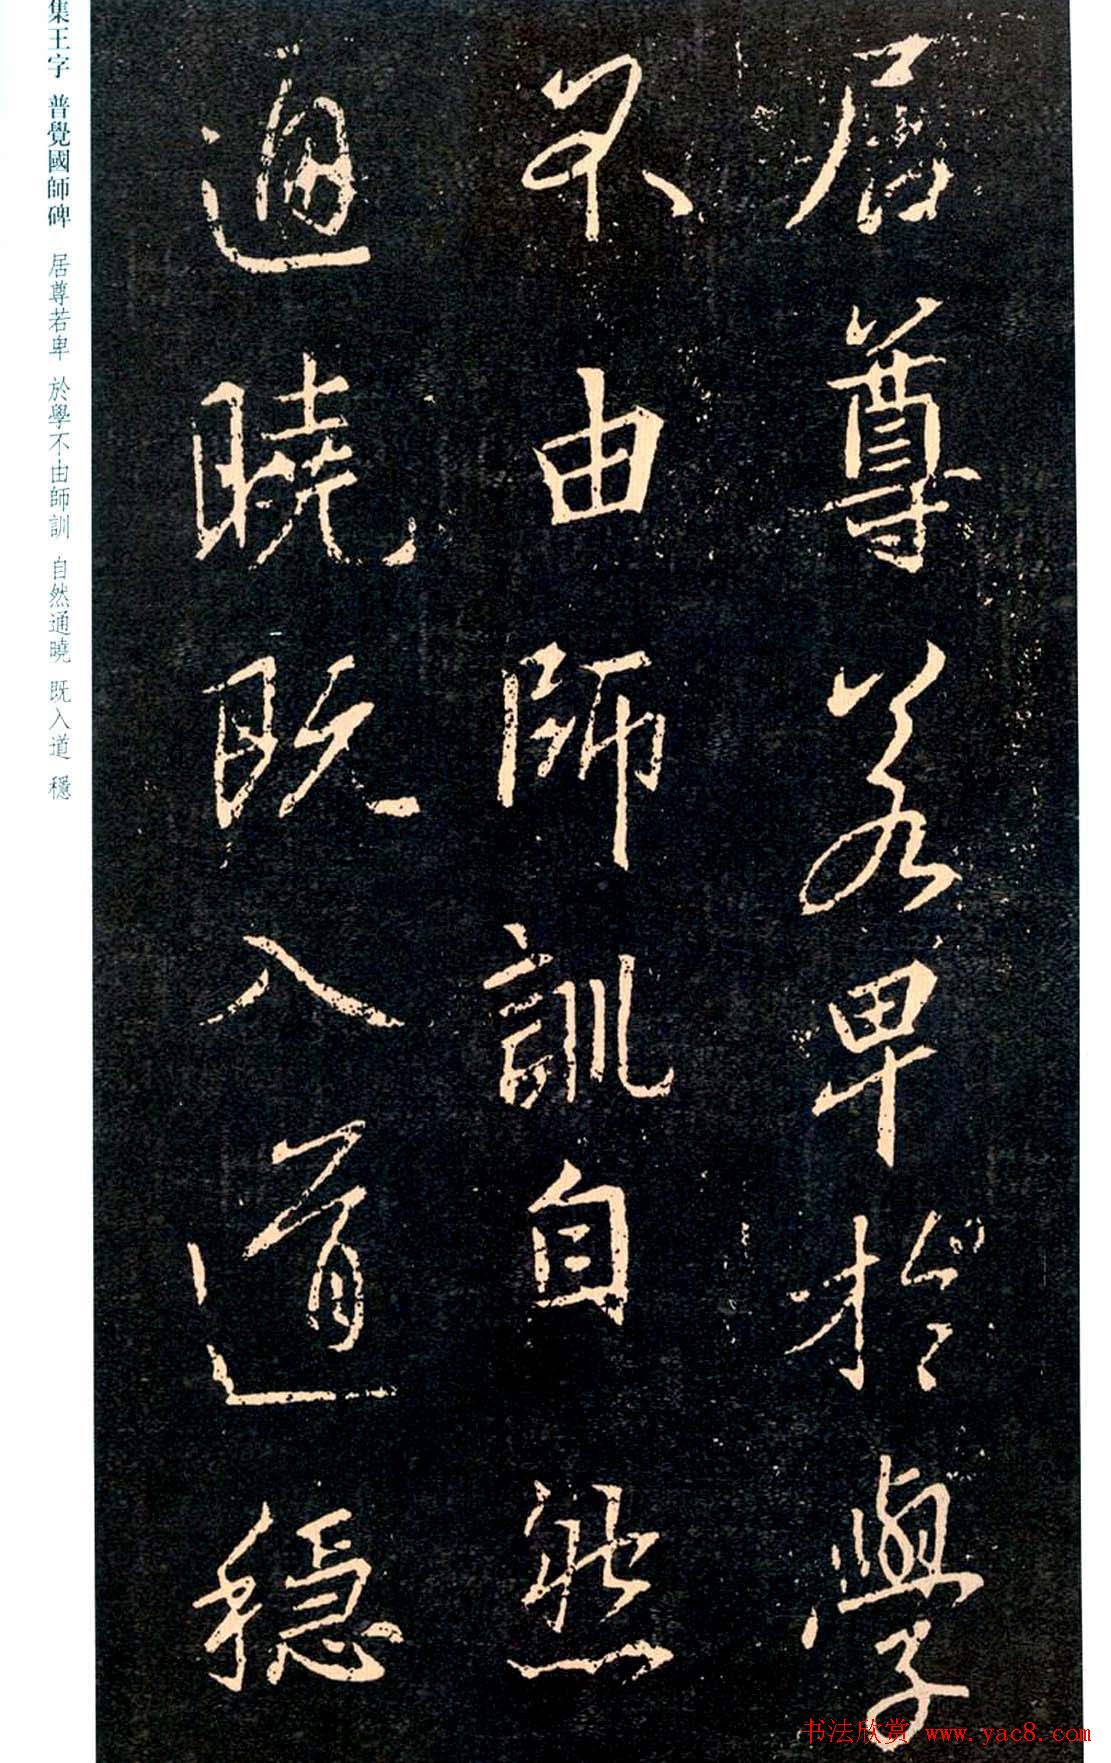 集王字 普覺國師碑 居尊若卑 於學不由師訓 自然通曉 既入道 穩
居尊若卑於學
不由師訓自然
通曉既入道穩
书法欣赏 www.yac8.com